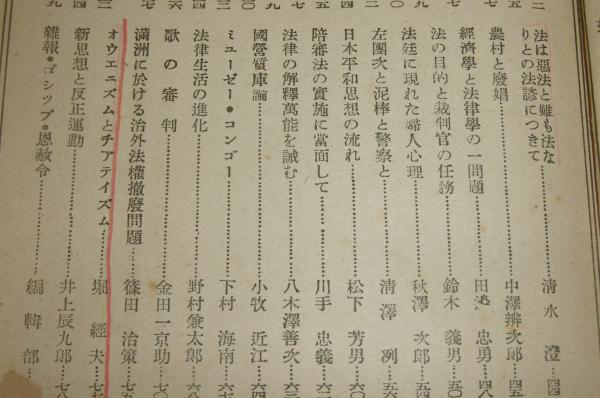 法は惡法と雖も法な
りとの法諺につきて……清水 澄…四
農村と廢娼……中澤辨次郎…四五
經濟學と法律學の一問題……田 忠勇…四八
法の目的と裁判官の任務……鈴木 義男…五〇
法廷に現れた婦人心理……秋澤 次郎…五四
左團次と泥棒と警察と……清澤 冽…五六
日本平和思想の流れ……松下 芳男…
陪審法の實施に當面して……川手 忠義…六
法律の解釋萬能を誡む……八木澤善次…六三
國營質庫論……小牧 近江…六四
ミユーゼー・コンゴー……下村 海南…六
法律生活の進化……野村兼太郎…六八
歌の審判……金田一京助…七
滿洲に於ける治外法權撤廢問題……篠田 治策…七五
オウエニズムとチアテイズム……堀 經夫…七
新思想と反正運動……井上辰九郎…七八
雜報・ゴシツプ・恩赦令……編輯部…